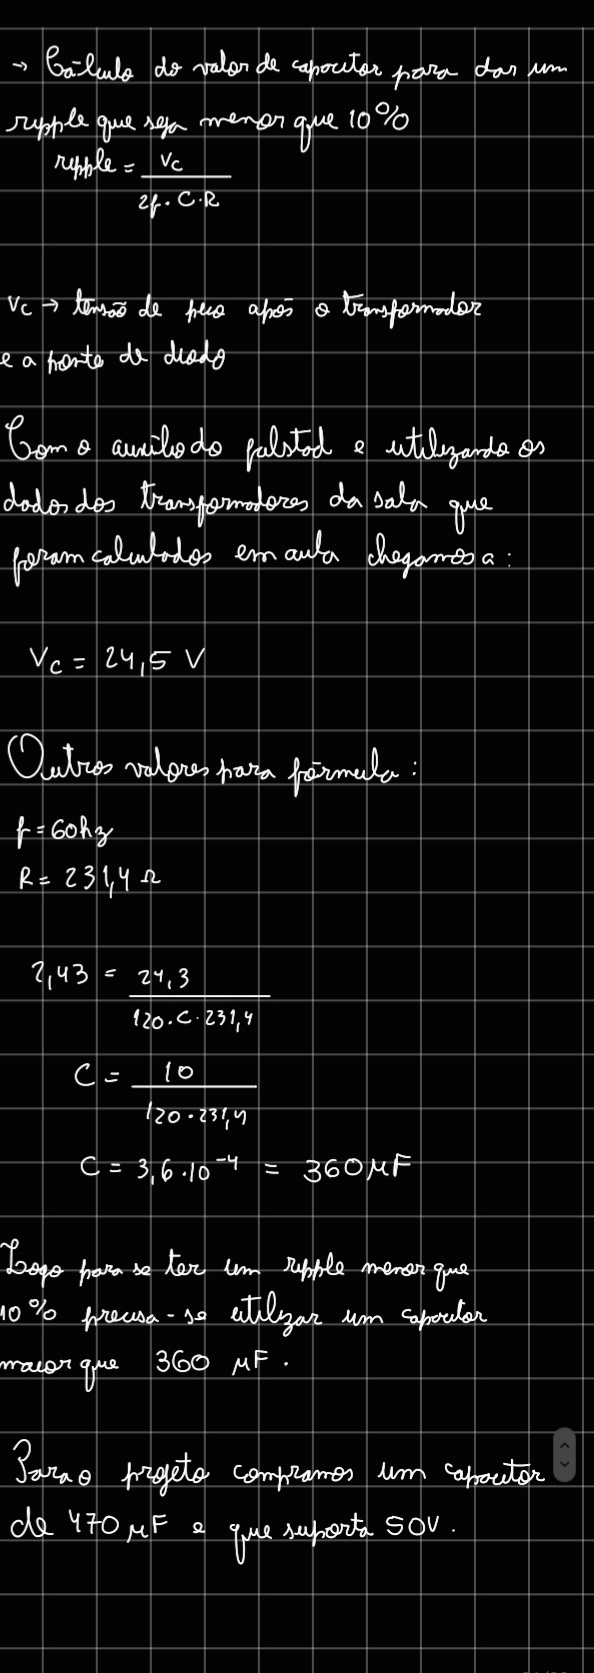 → Cálculo do valor de capacitor para dar um
ripple que seja menor que 10%
ripple = Vc
2f・C・R
Vc → tensão de pico após o transformador
e a ponte de diodo
Com o auxílio do falstad e utilizando os
dados dos transformadores da sala que
foram calculados em aula chegamos a:
Vc = 24,5 V
Outros valores para fórmula:
f = 60hz
R = 231,4 Ω
2,43 = 24,3
120・C・231,4
C = 10
120・231,4
C = 3,6・10⁻⁴ = 360 μF
Logo para se ter um ripple menor que
10% precisa-se utilizar um capacitor
maior que 360 μF.
Para o projeto compramos um capacitor
de 470 μF e que suporta 50V.